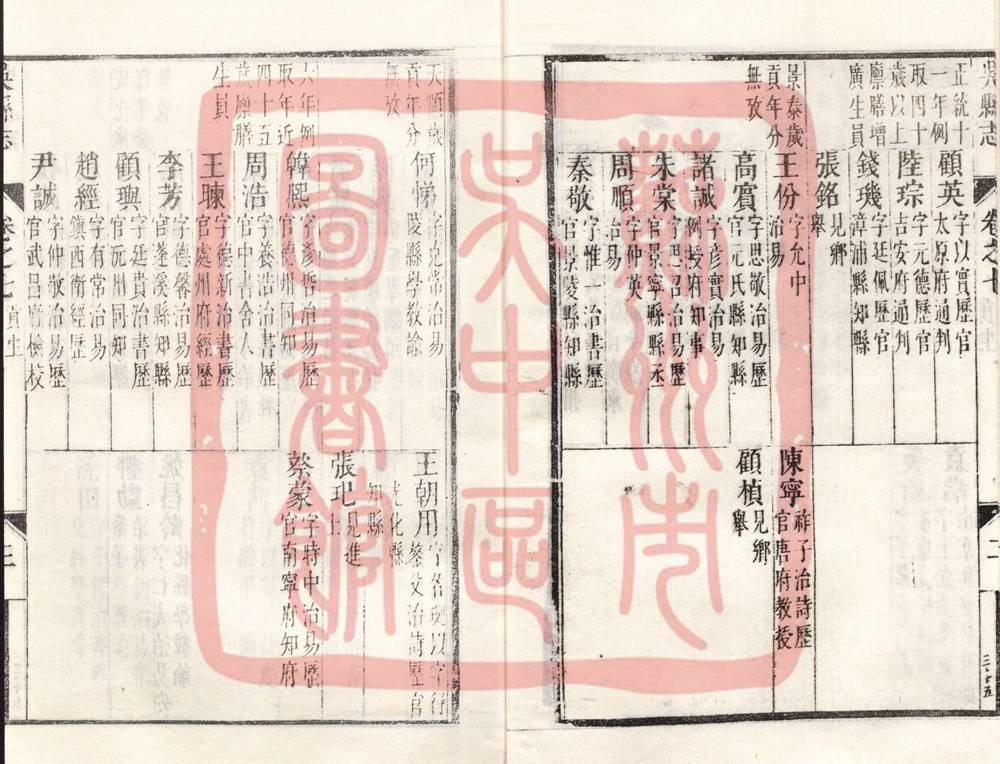 吳縣志
卷之七
正統十
一年例
取四十
歲以上
廩膳增
廣生員
顧英 字以實歷官
太原府通判
陸琮 字元德歷官
吉安府通判
錢璣 字廷佩歷官
漳浦縣知縣
張銘 見鄉
舉
景泰歲
貢年分
無攷
王份 字允中
治易
陳寧 祚子治詩歷
官唐府教授
高賓 字思敬治易歷
官元氏縣知縣
顧楨 見鄉
舉
諸誠 字彥實治易
例授府知事
朱棠 字思召治易歷
官景寧縣丞
周順 字仲英
治易
秦敬 字惟一治書歷
官景陵縣知縣
天順歲
貢年分
無攷
何悌 字克常治易
陵縣學教諭
王朝用 字名琬以字行
鏊父治詩歷官
光化縣
知縣
張玘 見進
士
六年例
取年近
四十五
歲廩膳
生員
韓熙 字彥哲治易歷
官德州同知
蔡蒙 字時中治易歷
官南寧府知府
周浩 字養浩治書歷
官中書舍人
王暕 字德新治書歷
官處州府經歷
李芳 字德馨治易歷
官蓬溪縣知縣
顧璵 字廷貴治書歷
官沅州同知
趙經 字有常治易歷
鎮西衛經歷
尹誠 字仲敬治易歷
官武昌府檢校
吳縣志
卷之七 貢生
蘇州市
吳中區
圖書館